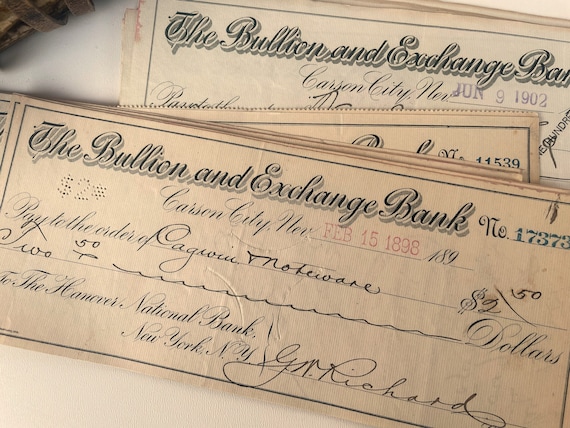 The Bullion and Exchange Bank
Carson City, Nev. JUN 9 1902
Pay to the
Bank No. 11539
The Bullion and Exchange Bank No. 17373
Carson City, Nev. FEB 15 1898 189
Pay to the order of Cagwin & Noteware $2 50
Two 50 Dollars
To The Hanover National Bank,
New York, N.Y. G. W. Richard